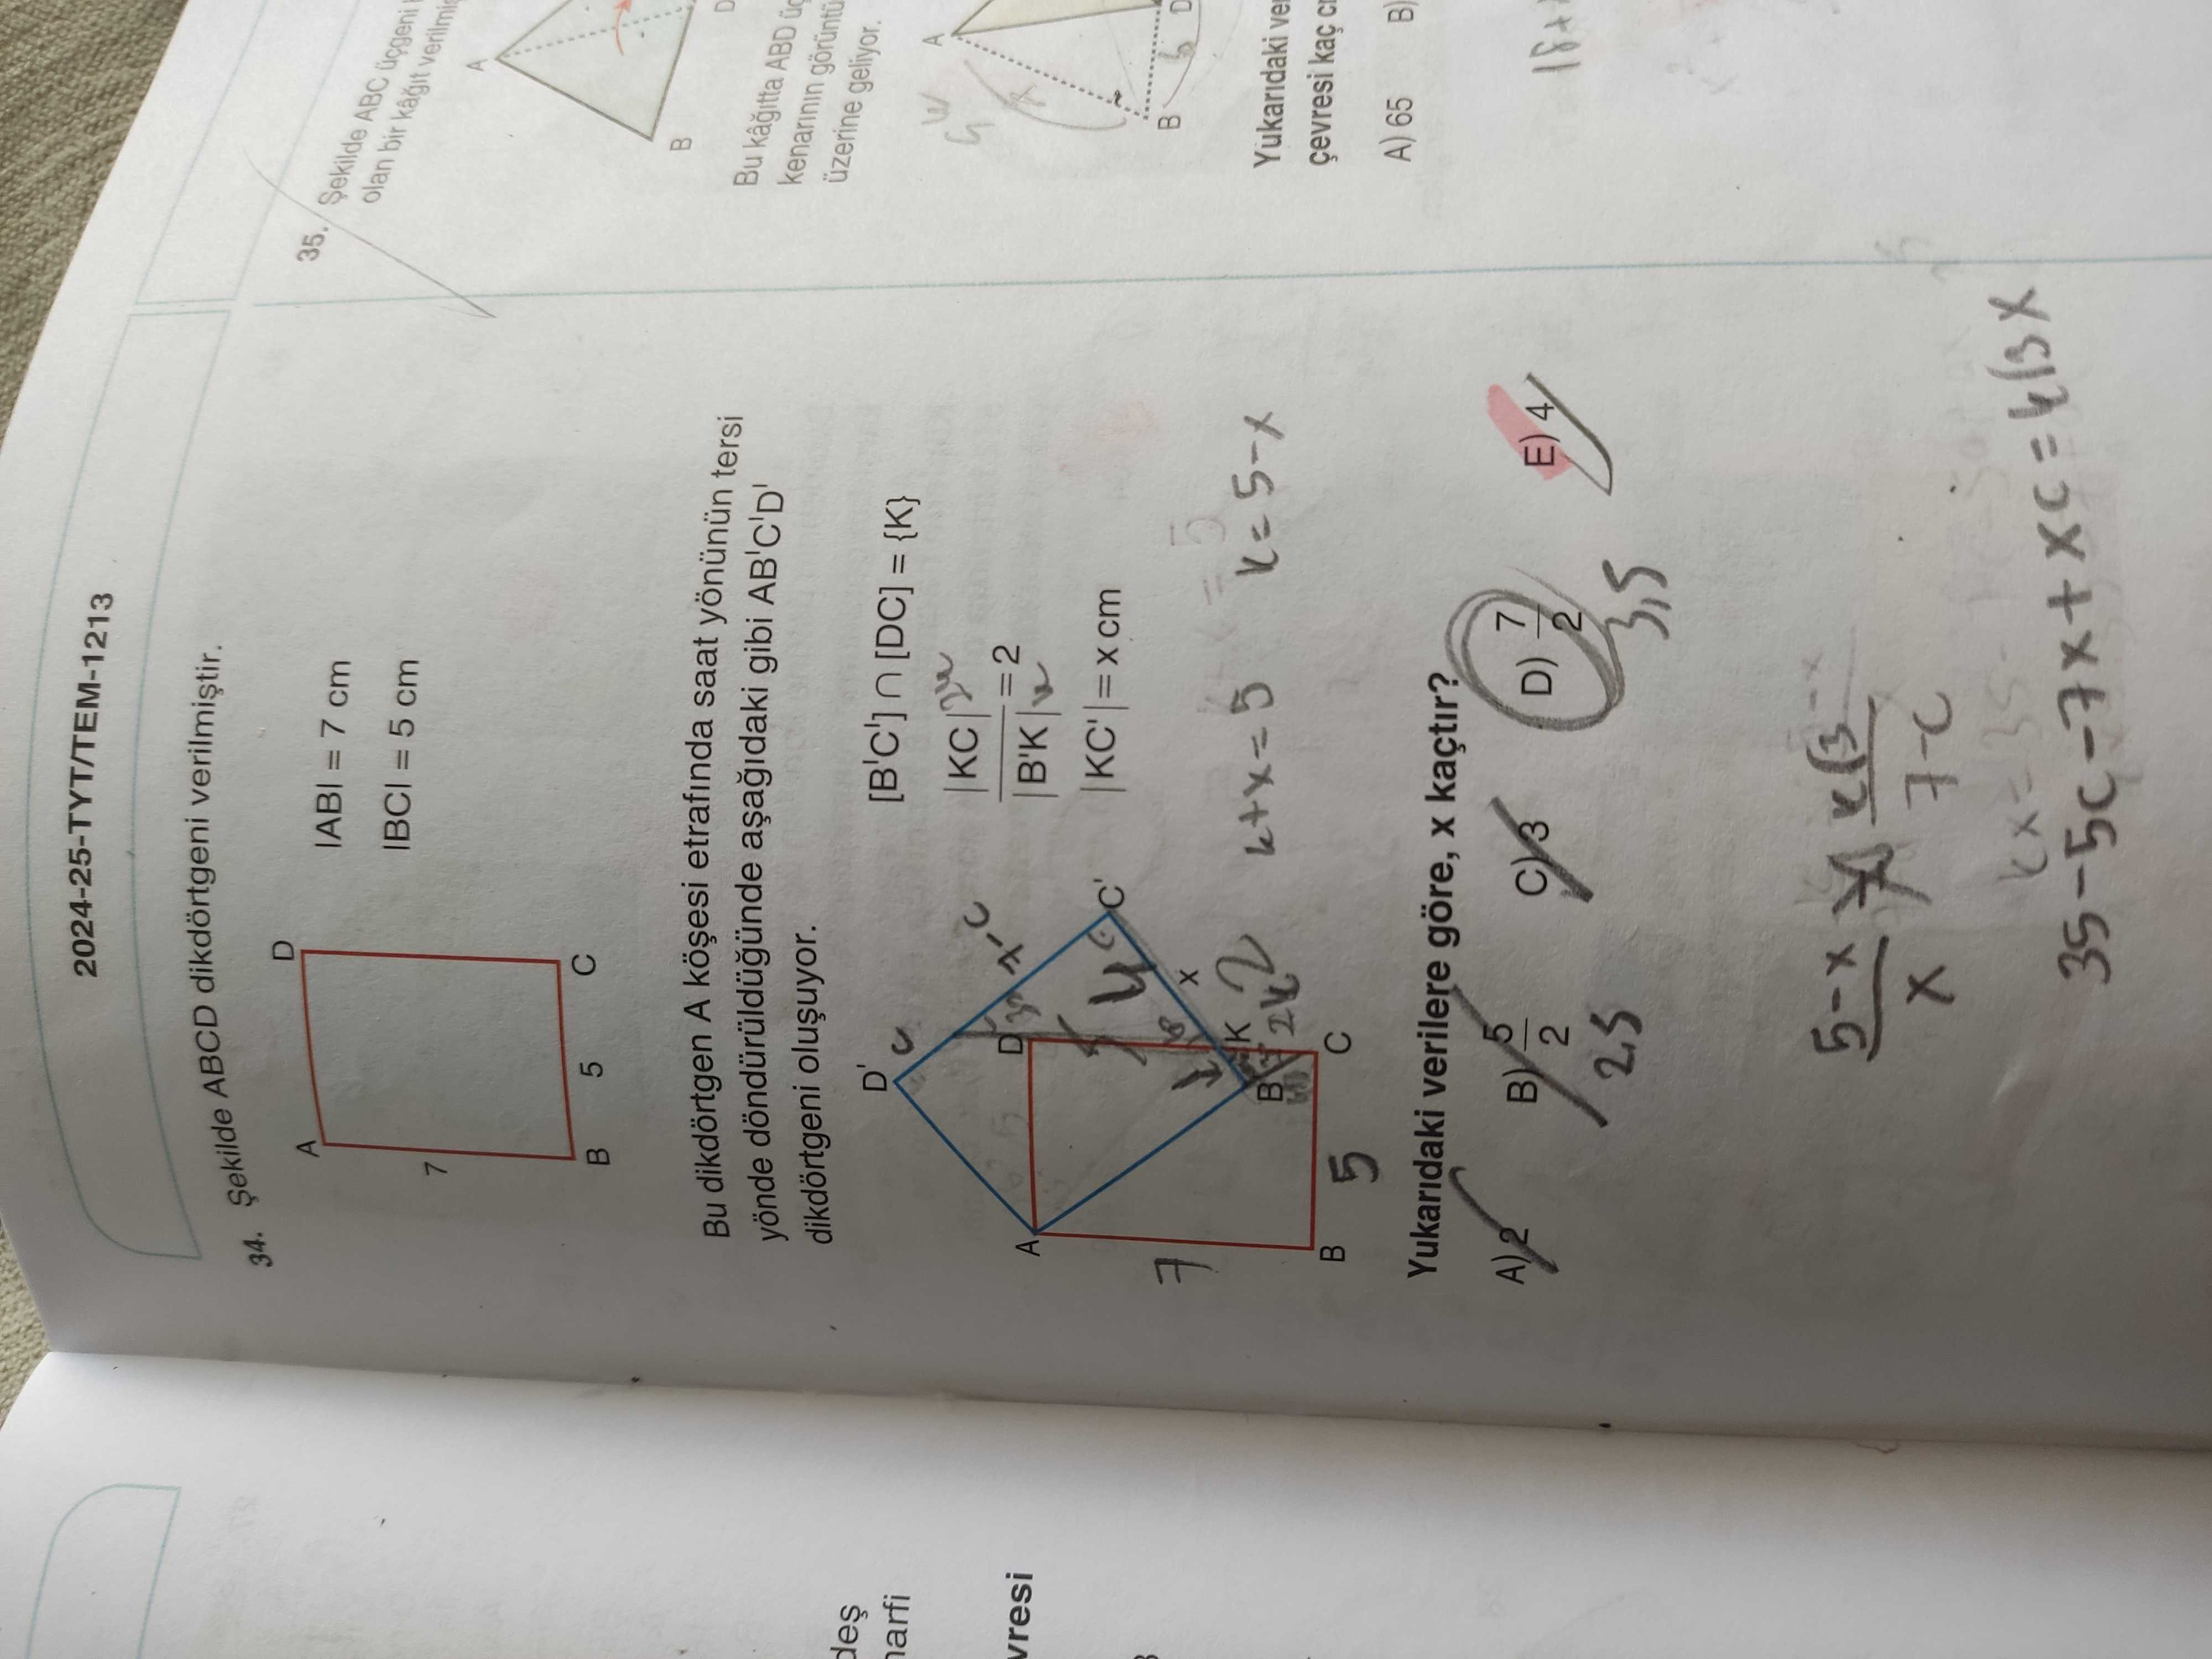 2024-25-TYT/TEM-1213
34. Şekilde ABCD dikdörtgeni verilmiştir.
A
D
7
B
5
C
|AB| = 7 cm
|BC| = 5 cm
Bu dikdörtgen A köşesi etrafında saat yönünün tersi
yönde döndürüldüğünde aşağıdaki gibi AB'C'D'
dikdörtgeni oluşuyor.
D'
A
D
C'
K
B'
x
B
C
7
5
[B'C'] ∩ [DC] = {K}
|KC|
|B'K|
= 2
|KC'| = x cm
k+x=5
k=5-x
Yukarıdaki verilere göre, x kaçtır?
A) 2
B) 5/2
C) 3
D) 7/2
E) 4
2,5
3,5
5-x
x
7-c
35-5c-7x+xc=
35. Şekilde ABC üçgeni
olan bir kâğıt
A
B
D
Bu kâğıtta ABD
kenarının
üzerine geliyor.
A
B
D
Yukarıdaki
çevresi kaç
A) 65
B)
18+
vresi